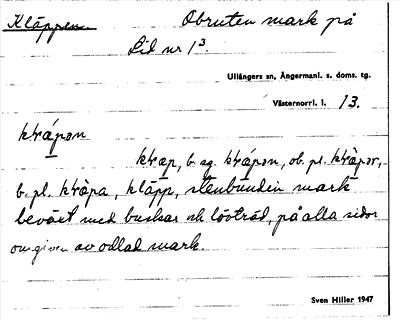 Kläppen.
Obruten mark på
Lid nr 1³.
Ullångers sn, Ångermanl. s. doms. tg.
Västernorrl. l. 13.
b. sg.
ob. pl.
b. pl. kläpp, stenbunden mark
beväxt med buskar och lövträd, på alla sidor
omgiven av odlad mark.
Sven Hiller 1947